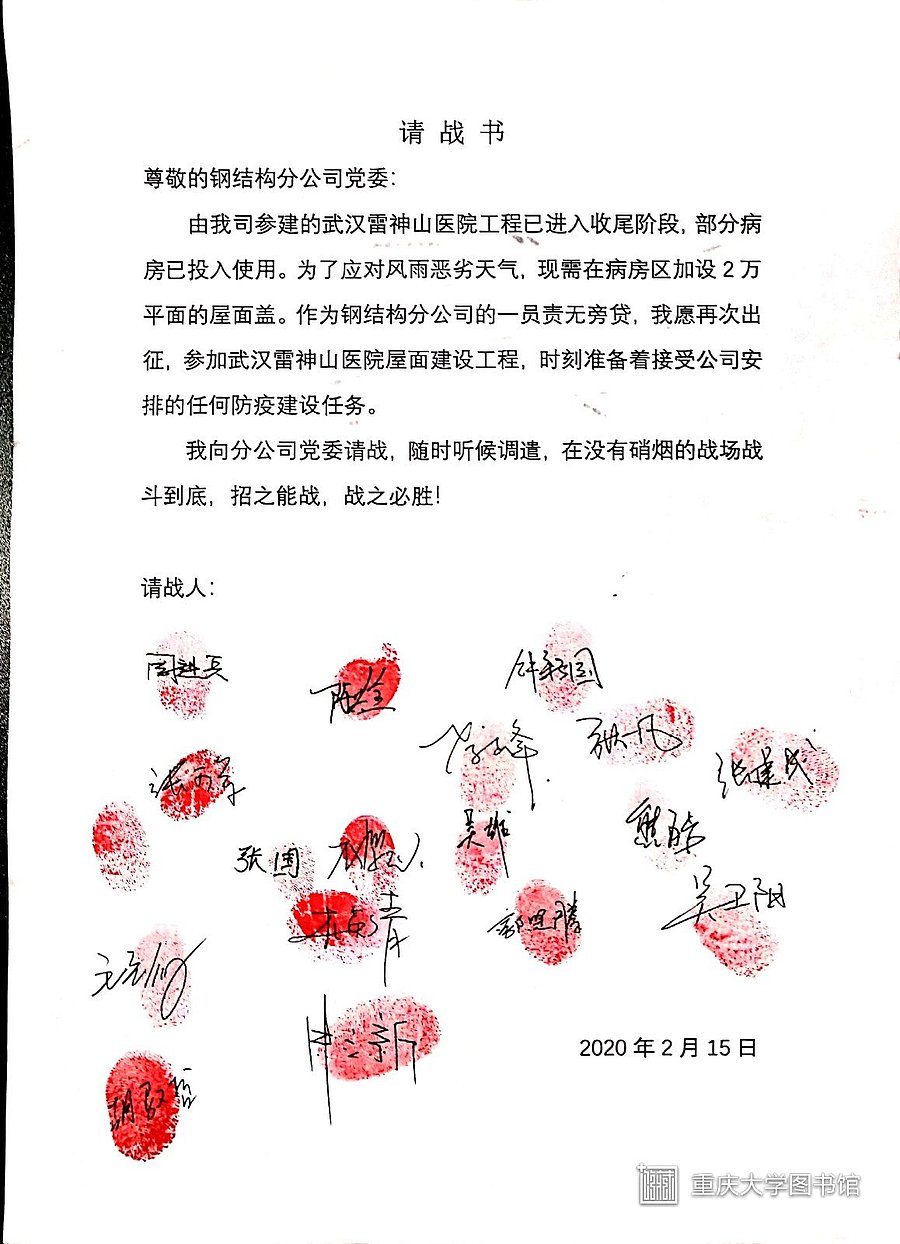 请战书
尊敬的钢结构分公司党委：
由我司参建的武汉雷神山医院工程已进入收尾阶段，部分病
房已投入使用。为了应对风雨恶劣天气，现需在病房区加设2万
平面的屋面盖。作为钢结构分公司的一员责无旁贷，我愿再次出
征，参加武汉雷神山医院屋面建设工程，时刻准备着接受公司安
排的任何防疫建设任务。
我向分公司党委请战，随时听候调遣，在没有硝烟的战场战
斗到底，招之能战，战之必胜！
请战人：
张一凡
张建成
吴雄
熊皓
张国
郭照腾
吴卫阳
2020年2月15日
重庆大学图书馆